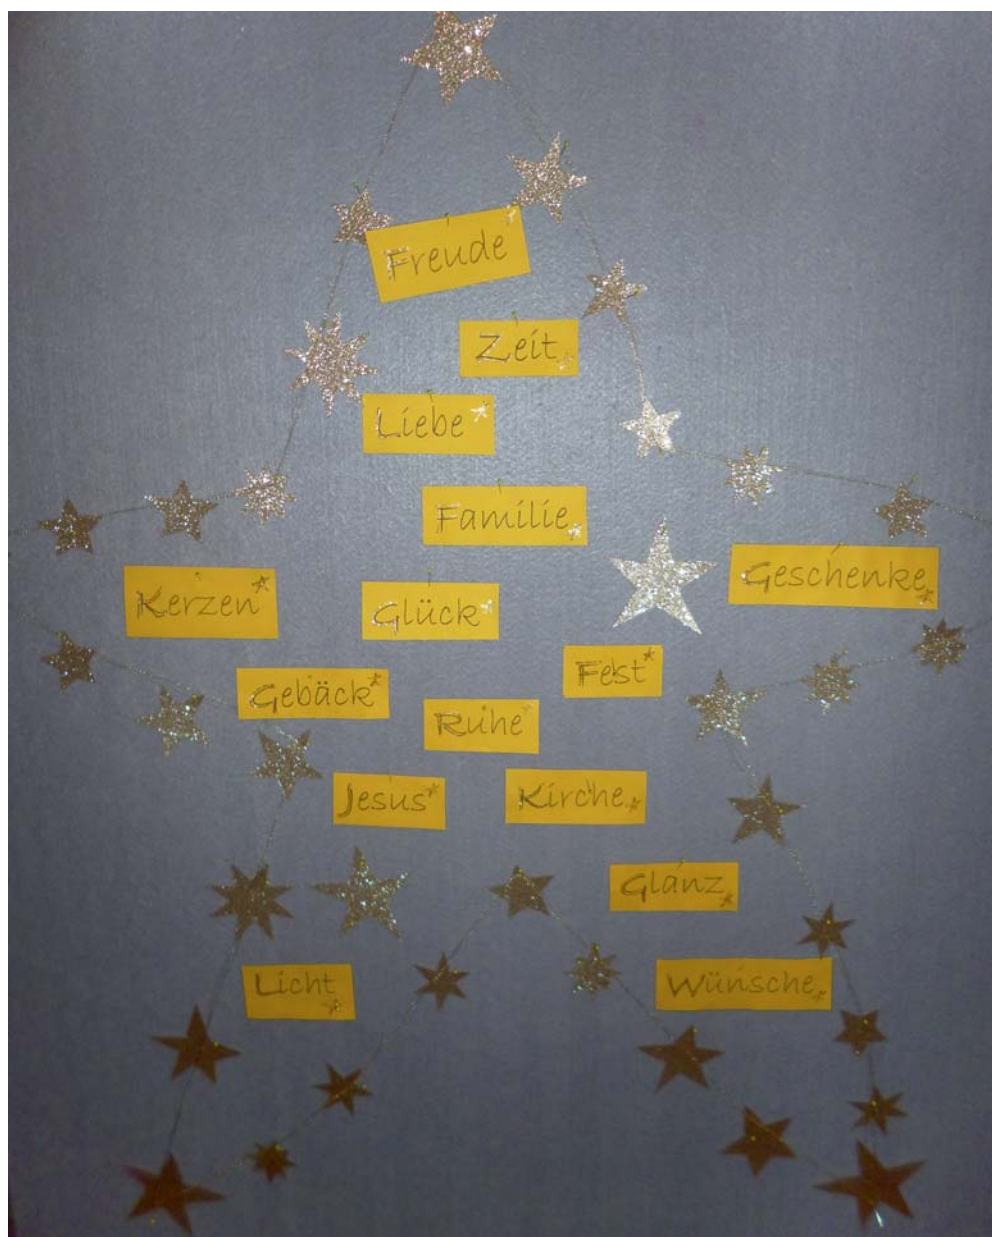 Freude
Zeit
Liebe
Familie
Geschenke
Kerzen
Glück
Fest
Gebäck
Ruhe
Jesus
Kirche
Glanz
Licht
Wünsche